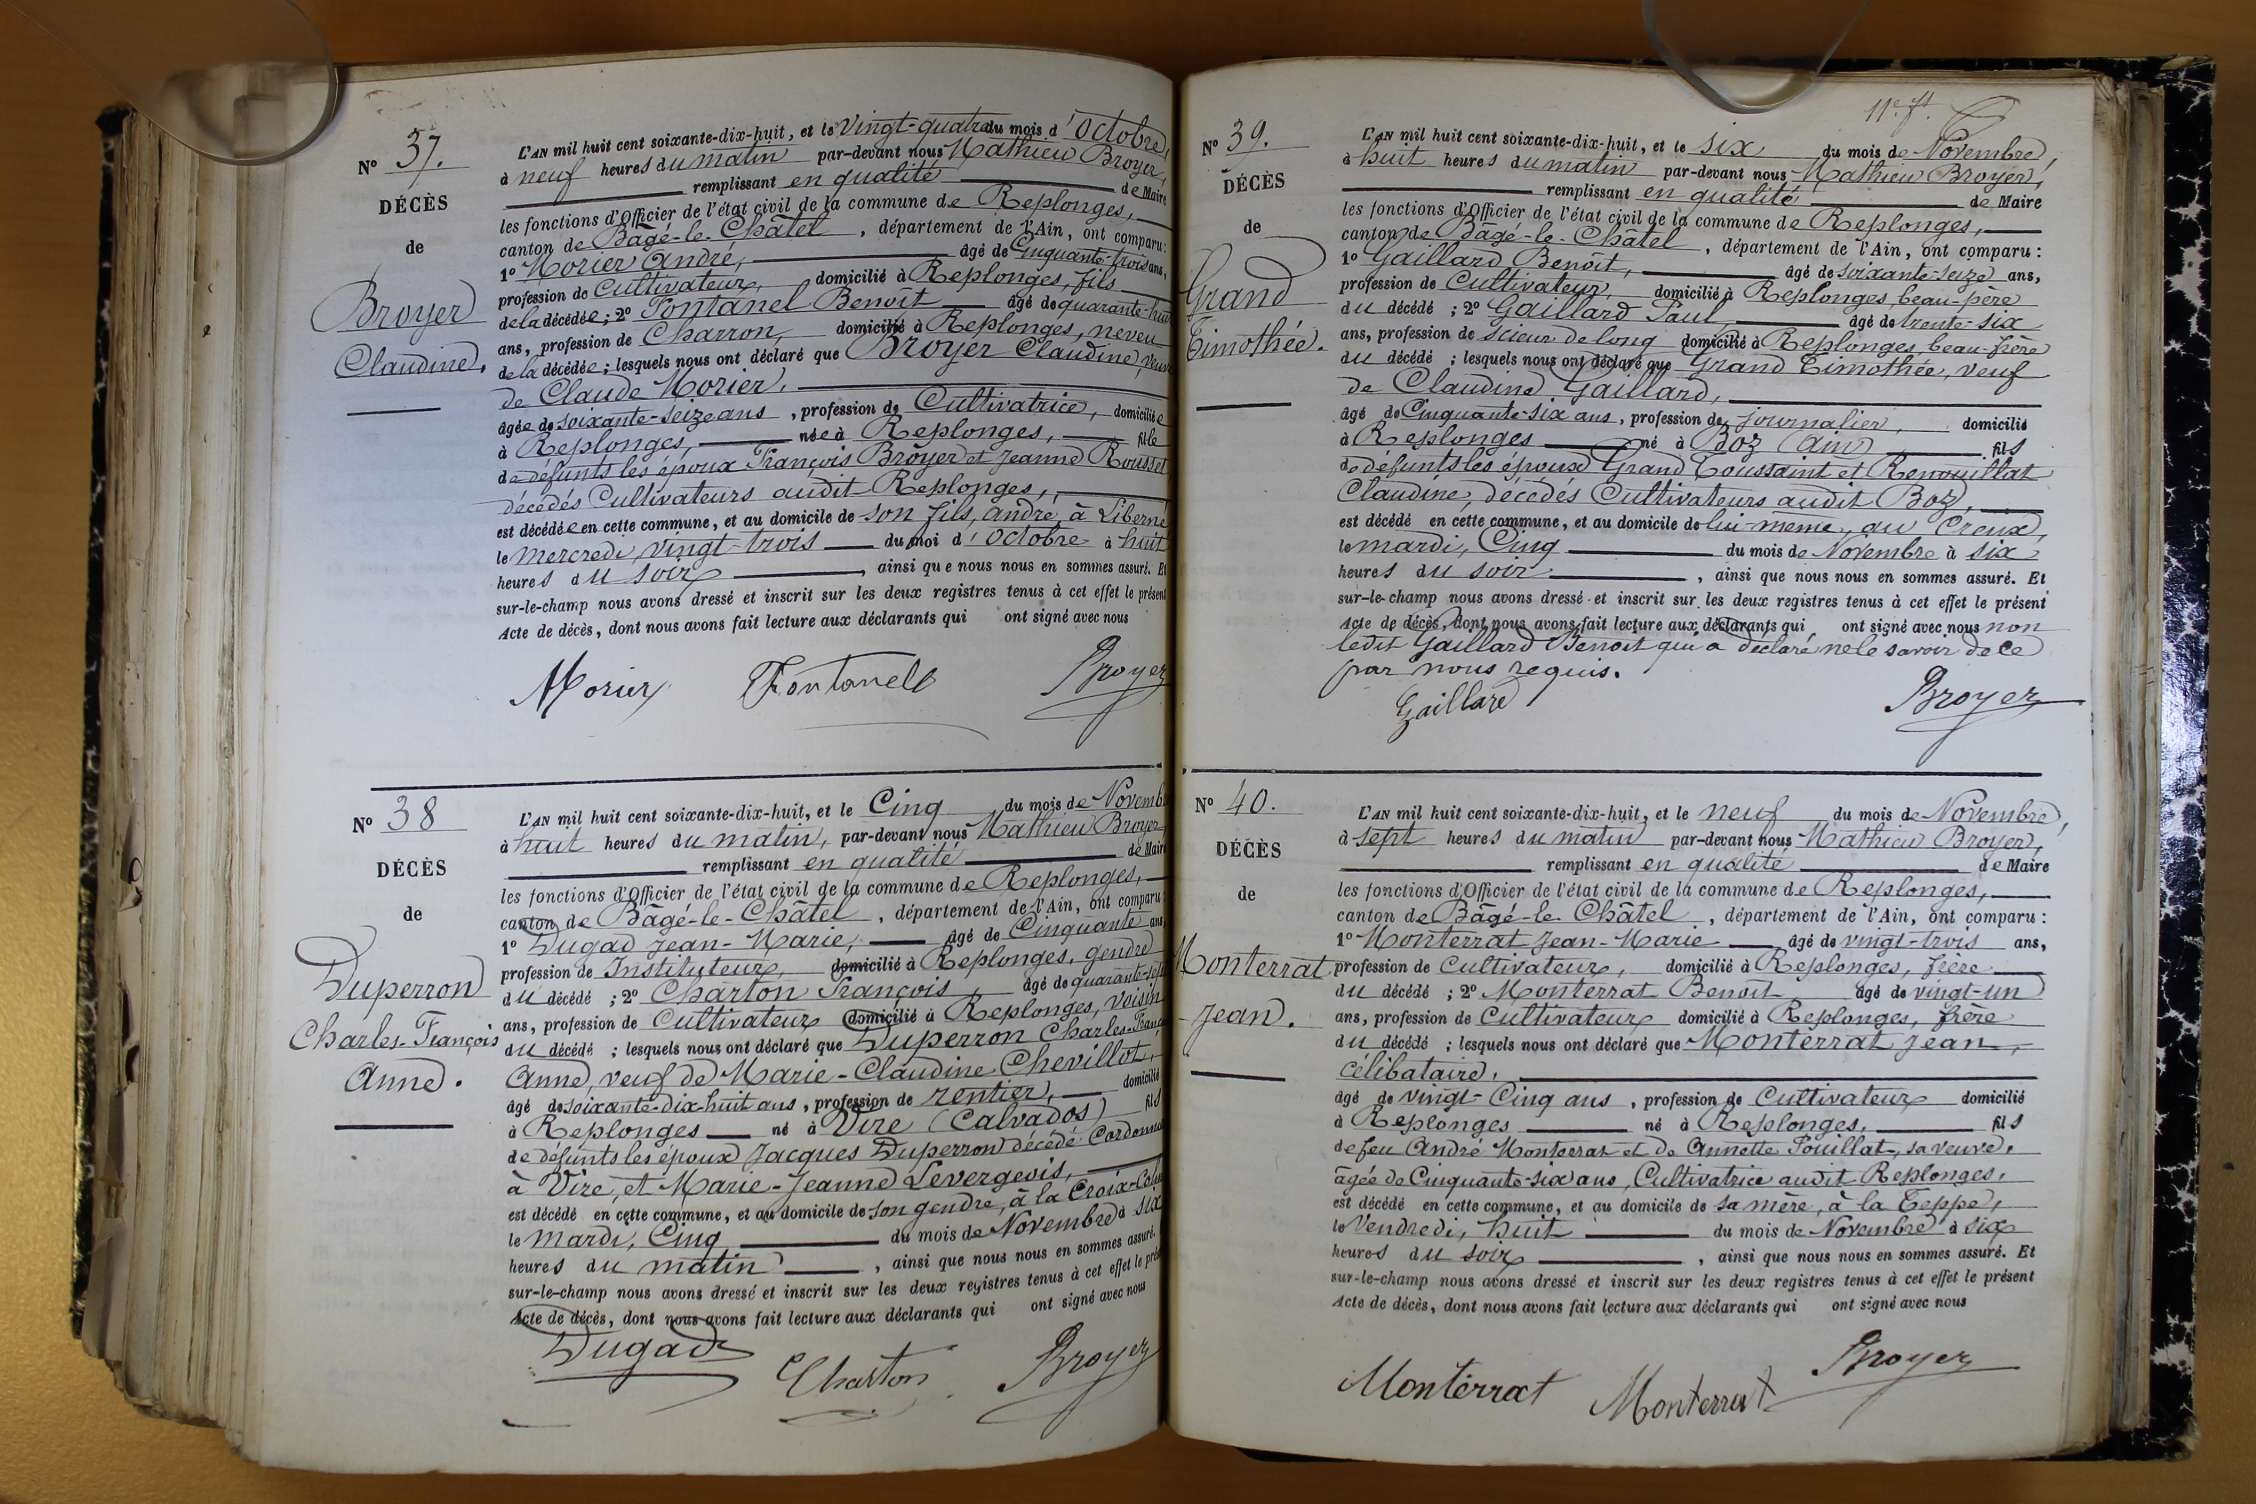 N° 37.
DÉCÈS
de
Broyer
Claudine.
L'AN mil huit cent soixante-dix-huit, et le vingt-quatre du mois d'Octobre,
à neuf heures du matin par-devant nous Mathieu Broyer,
remplissant en qualité de Maire
les fonctions d'Officier de l'état civil de la commune de Replonges,
canton de Bâgé-le-Châtel, département de l'Ain, ont comparu:
1° Morier André, âgé de Cinquante-trois ans,
profession de Cultivateur, domicilié à Replonges, fils
de la décédée; 2° Fontanel Benoit âgé de quarante-huit
ans, profession de Charron, domicilié à Replonges, neveu
de la décédée; lesquels nous ont déclaré que Broyer Claudine, veuve
de Claude Morier,
âgée de soixante-seize ans, profession de Cultivatrice, domiciliée
à Replonges, née à Replonges, fille
de défunts les époux François Broyer et Jeanne Rousset
décédés Cultivateurs audit Replonges,
est décédée en cette commune, et au domicile de son fils, andré, à Liberné
le mercredi, vingt-trois du moi d'Octobre à huit
heures du soir, ainsi que nous nous en sommes assuré. Et
sur-le-champ nous avons dressé et inscrit sur les deux registres tenus à cet effet le présent
Acte de décès, dont nous avons fait lecture aux déclarants qui ont signé avec nous
Morier Fontanel Broyer
N° 38
DÉCÈS
de
Duperron
Charles-François
Anne.
L'AN mil huit cent soixante-dix-huit, et le Cinq du mois de Novemb
à huit heures du matin, par-devant nous Mathieu Broyer,
remplissant en qualité de Maire
les fonctions d'Officier de l'état civil de la commune de Replonges,
canton de Bâgé-le-Châtel, département de l'Ain, ont comparu:
1° Dugad Jean-Marie, âgé de Cinquante ans,
profession de Instituteur, domicilié à Replonges, gendre
du décédé; 2° Charton François, âgé de quarante-sept
ans, profession de Cultivateur domicilié à Replonges, voisin
du décédé; lesquels nous ont déclaré que Duperron Charles-Franç
Anne, veuf de Marie-Claudine Chevillot,
âgé de soixante-dix-huit ans, profession de rentier, domicilié
à Replonges né à Vire (Calvados) fils
de défunts les époux Jacques Duperron décédé Cordonnie
à Vire, et Marie-Jeanne Levergeois,
est décédé en cette commune, et au domicile de son gendre, à la Croix-Colin
le mardi, Cinq du mois de Novembre à six
heures du matin, ainsi que nous nous en sommes assuré.
sur-le-champ nous avons dressé et inscrit sur les deux registres tenus à cet effet le prés
Acte de décès, dont nous avons fait lecture aux déclarants qui ont signé avec nous
Dugad Charton Broyer
11e ft.
N° 39.
DÉCÈS
de
Grand
Timothée.
L'AN mil huit cent soixante-dix-huit, et le six du mois de Novembre,
à huit heures du matin par-devant nous Mathieu Broyer,
remplissant en qualité de Maire
les fonctions d'Officier de l'état civil de la commune de Replonges,
canton de Bâgé-le-Châtel, département de l'Ain, ont comparu:
1° Gaillard Benoît, âgé de soixante-seize ans,
profession de Cultivateur, domicilié à Replonges, beau-père
du décédé; 2° Gaillard Paul, âgé de trente-six
ans, profession de scieur de long domicilié à Replonges, beau-frère
du décédé; lesquels nous ont déclaré que Grand Timothée, veuf
de Claudine Gaillard,
âgé de Cinquante-six ans, profession de journalier, domicilié
à Replonges né à Boz (ain) fils
de défunts les époux Grand Toussaint et Renouillat
Claudine, décédés Cultivateurs audit Boz,
est décédé en cette commune, et au domicile de lui-même, au Creux,
le mardi, Cinq du mois de Novembre à six
heures du soir, ainsi que nous nous en sommes assuré. Et
sur-le-champ nous avons dressé et inscrit sur les deux registres tenus à cet effet le présent
Acte de décès, dont nous avons fait lecture aux déclarants qui ont signé avec nous non
ledit Gaillard Benoit qui a déclaré ne le savoir de ce
par nous requis.
Gaillard Broyer
N° 40.
DÉCÈS
de
Monterrat
Jean.
L'AN mil huit cent soixante-dix-huit, et le neuf du mois de Novembre,
à sept heures du matin par-devant nous Mathieu Broyer,
remplissant en qualité de Maire
les fonctions d'Officier de l'état civil de la commune de Replonges,
canton de Bâgé-le-Châtel, département de l'Ain, ont comparu:
1° Monterrat Jean-Marie âgé de vingt-trois ans,
profession de Cultivateur, domicilié à Replonges, frère
du décédé; 2° Monterrat Benoit âgé de vingt-un
ans, profession de Cultivateur domicilié à Replonges, frère
du décédé; lesquels nous ont déclaré que Monterrat Jean,
célibataire,
âgé de vingt-Cinq ans, profession de Cultivateur domicilié
à Replonges né à Replonges, fils
de feu André Monterrat et de Annette Pouillat, sa veuve,
âgée de Cinquante-six ans, Cultivatrice audit Replonges,
est décédé en cette commune, et au domicile de sa mère, à la Teppe,
le Vendredi, huit du mois de Novembre à six
heures du soir, ainsi que nous nous en sommes assuré. Et
sur-le-champ nous avons dressé et inscrit sur les deux registres tenus à cet effet le présent
Acte de décès, dont nous avons fait lecture aux déclarants qui ont signé avec nous
Monterrat Monterrat Broyer